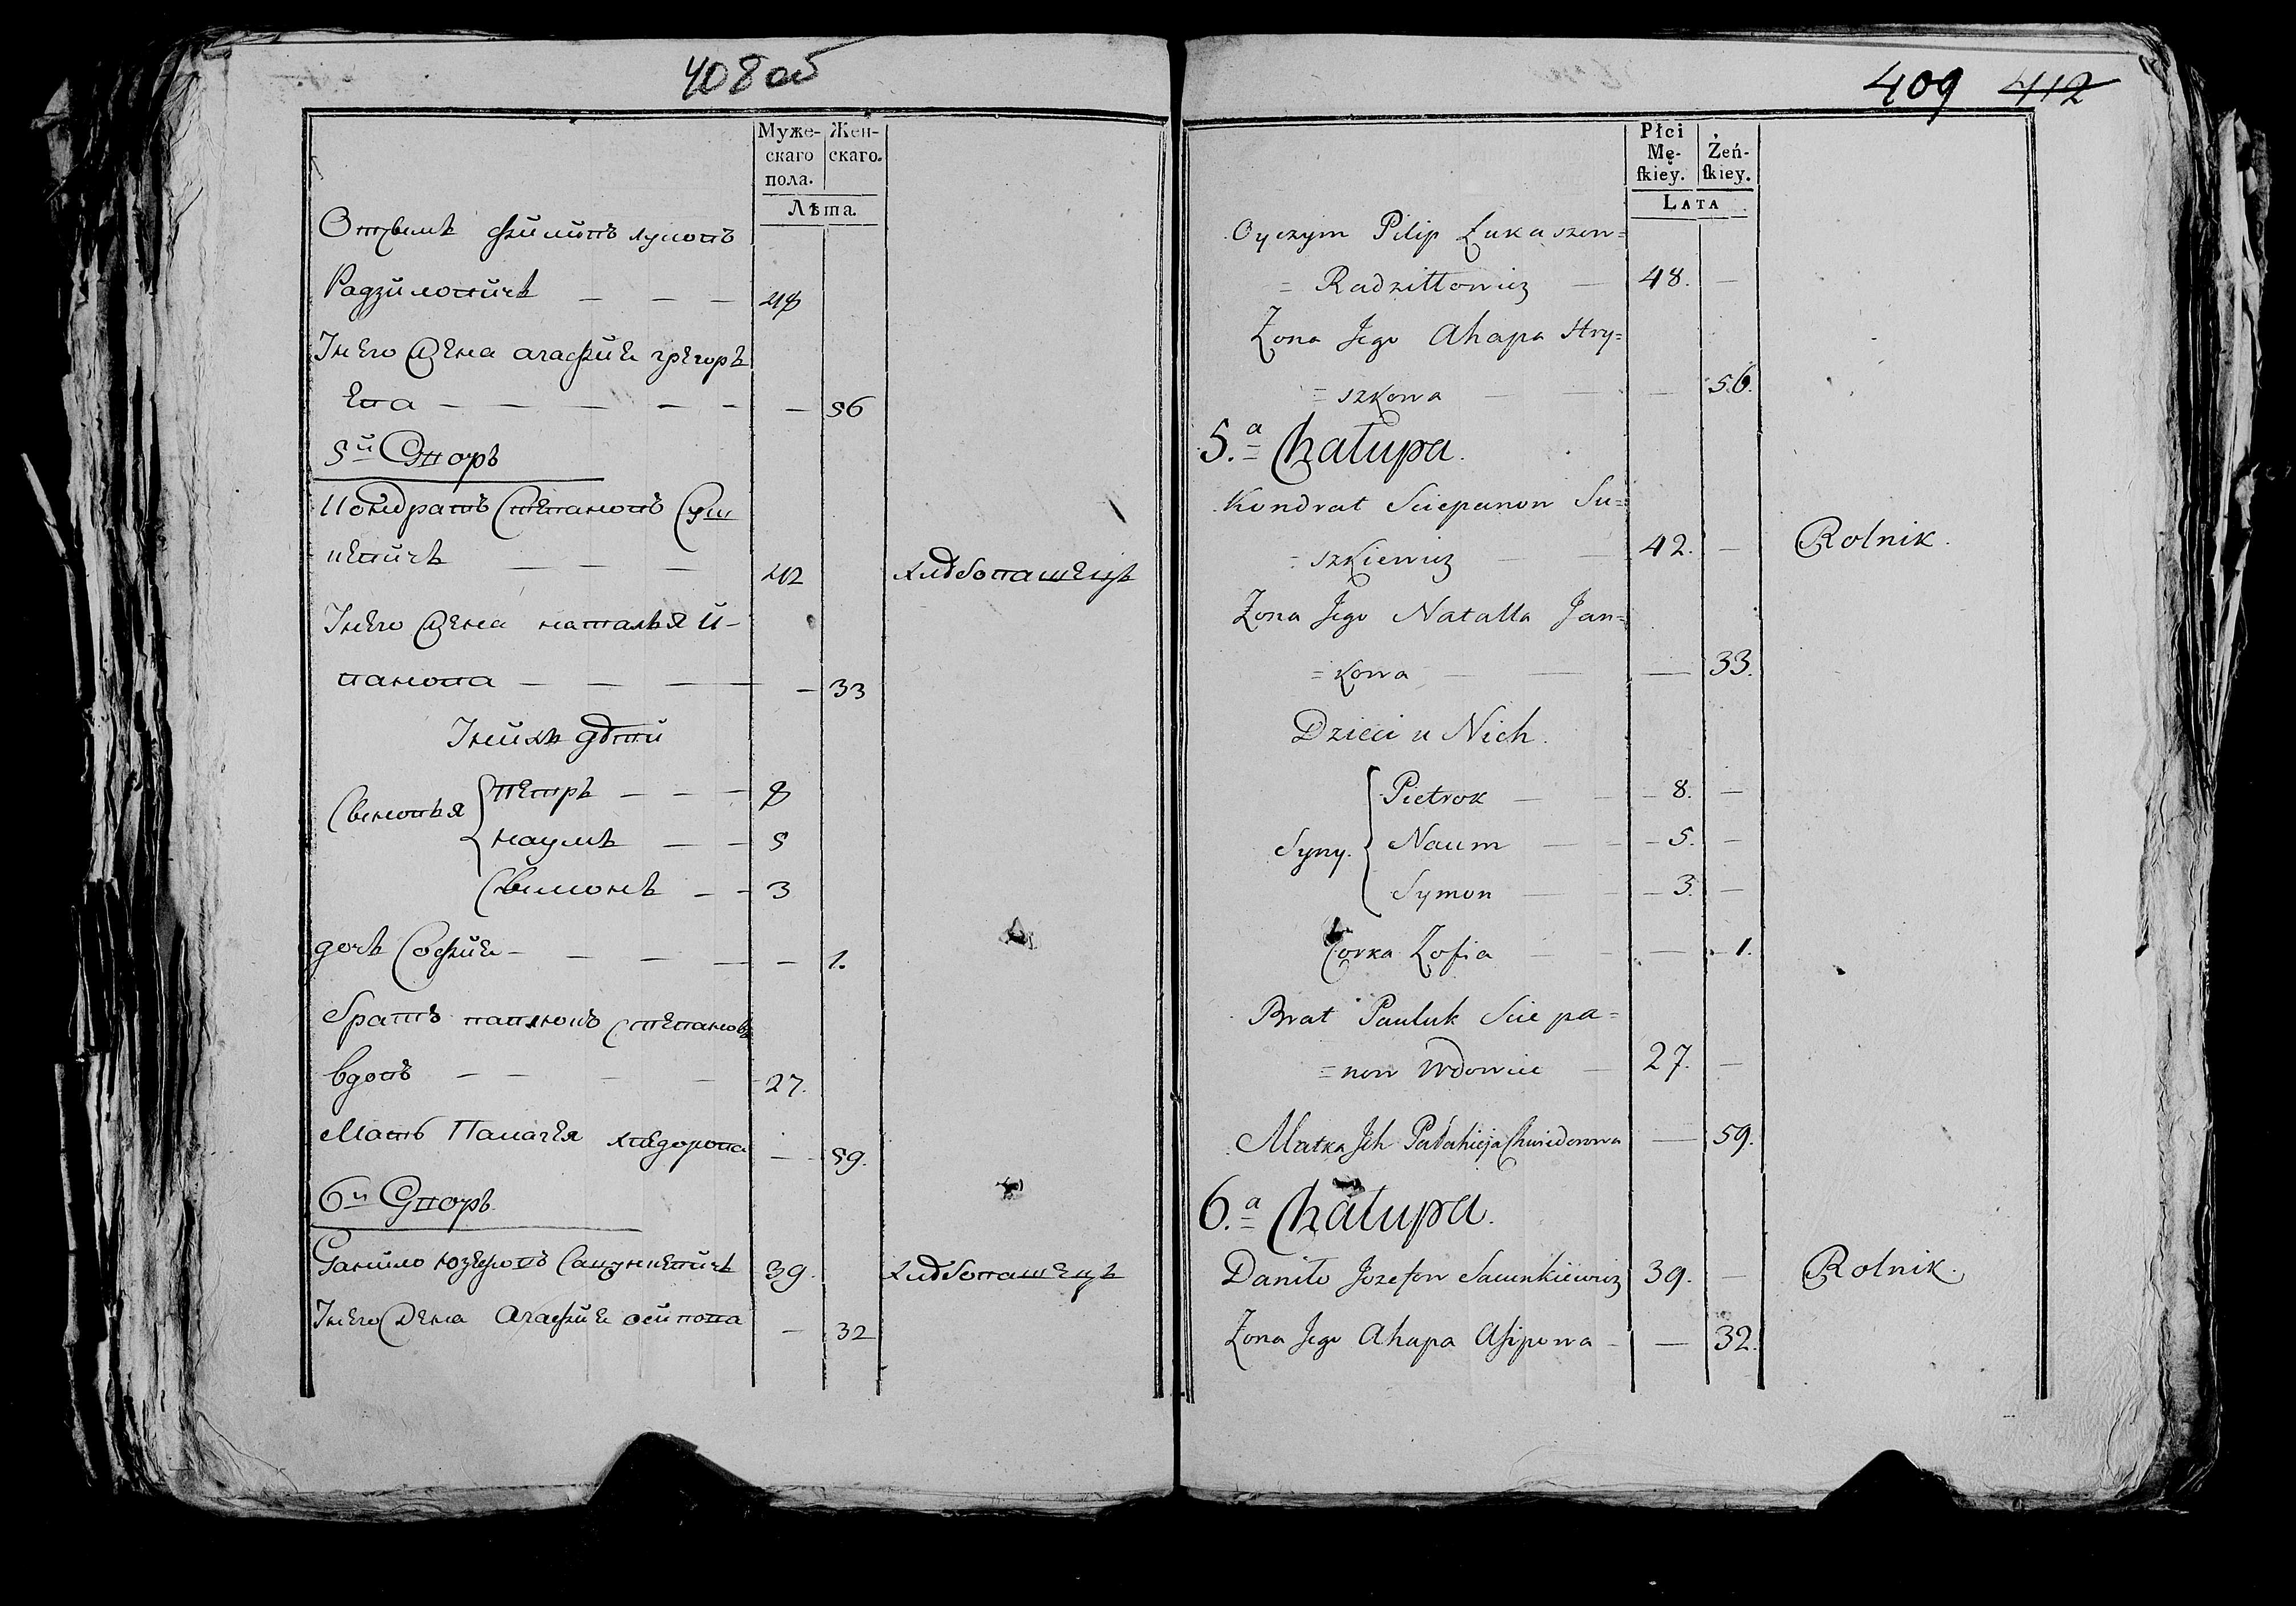 408 об
Муже-
скаго
пола.
Жен-
скаго.
Лѣта.
Отчымъ Филипъ луковъ
Радзиловичъ — — — 48
У него жена агафия грегорь
ева — — — — — — 56
5й Дворъ
Кондратъ Степановъ Суш
кевичъ — — — 42 хлѣбопашецъ
У него жена наталья и-
ванова — — — — — 33
У нихъ дѣти
Сыновья
петръ — — — 8
наумъ — — 5
Сымонъ — — 3
дочь София — — — — — 1.
братъ павлюкъ степановъ
вдовъ — — — — 27.
Мать Палагея хведорова — 59.
6й Дворъ
Данило юзефовъ 39. хлѣбопашецъ
У него жена Агафия осипова — 32
409 412
Płci
Mę-
ſkiey.
Żeń-
ſkiey.
LATA
Oyczym Pilip Łukaszow=
= Radziłłowicz — 48. —
Zona Jego Ahapa Hry=
= szkowa — — — 56.
5.a Chałupa.
Kondrat Sciepanow Su=
= szkiewicz — — 42. — Rolnik.
Zona Jego Natalla Jan=
= kowa — — — 33.
Dzieci u Nich.
Syny.
Pietrok — — — 8. —
Naum — — — 5. —
Symon — — — 3. —
Corka Zofia — — — 1.
Brat Pauluk Sciepa=
= now Wdowiec — 27. —
Matka Jch Pałahieja Chwiedorowa — 59.
6.a Chałupa.
Daniło Jozefow Sacunkiewicz 39. — Rolnik.
Zona Jego Ahapa Aſipowa — — 32.